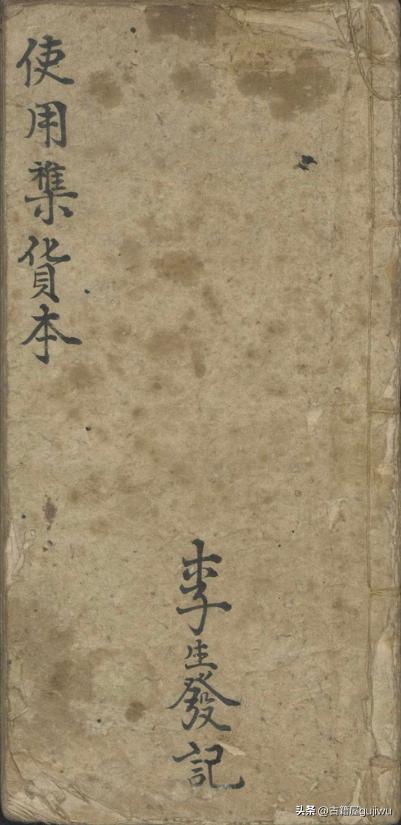 使用集貨本
李生發記
头条 @古籍屋gujiwu